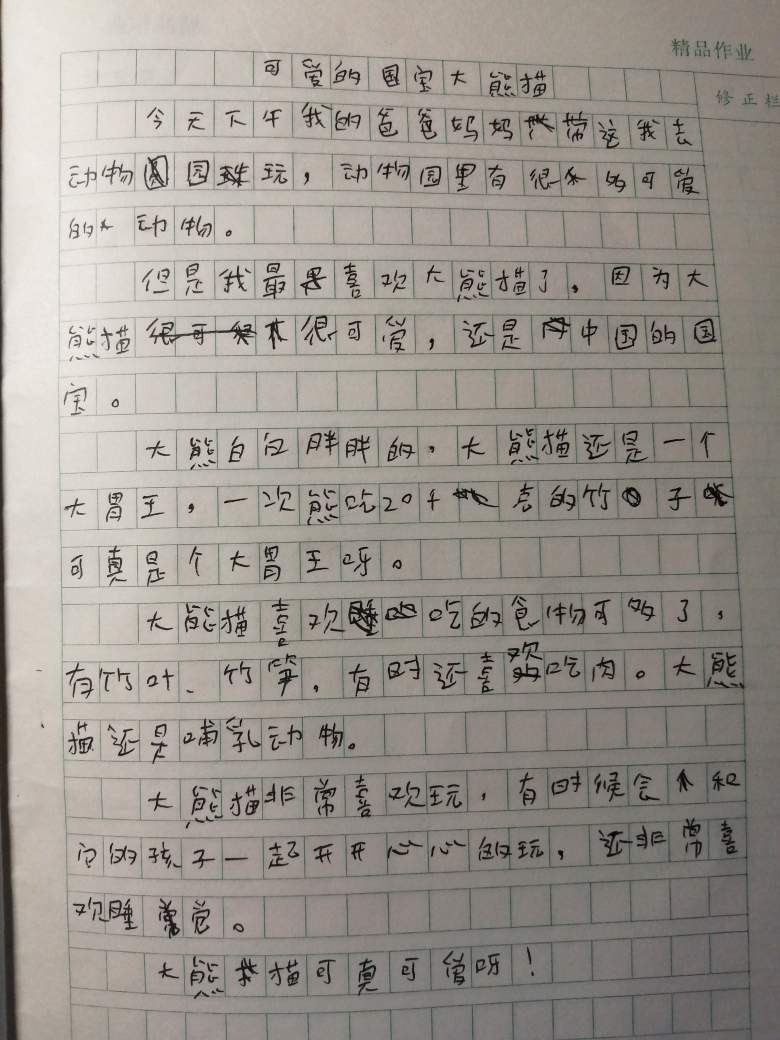 精品作业
修正栏
可爱的国宝大熊猫
今天下午我的爸爸妈妈带这我去
动物园玩，动物园里有很多的可爱
的动物。
但是我最喜欢大熊猫了，因为大
熊猫很可爱，还是中国的国
宝。
大熊白白胖胖的，大熊猫还是一个
大胃王，一次熊吃20千克的竹子
可真是个大胃王呀。
大熊猫喜欢吃的食物可多了，
有竹叶、竹笋，有时还喜欢吃肉。大熊
猫还是哺乳动物。
大熊猫非常喜欢玩，有时候会和
它的孩子一起开开心心的玩，还非常喜
欢睡觉。
大熊猫可真可爱呀！